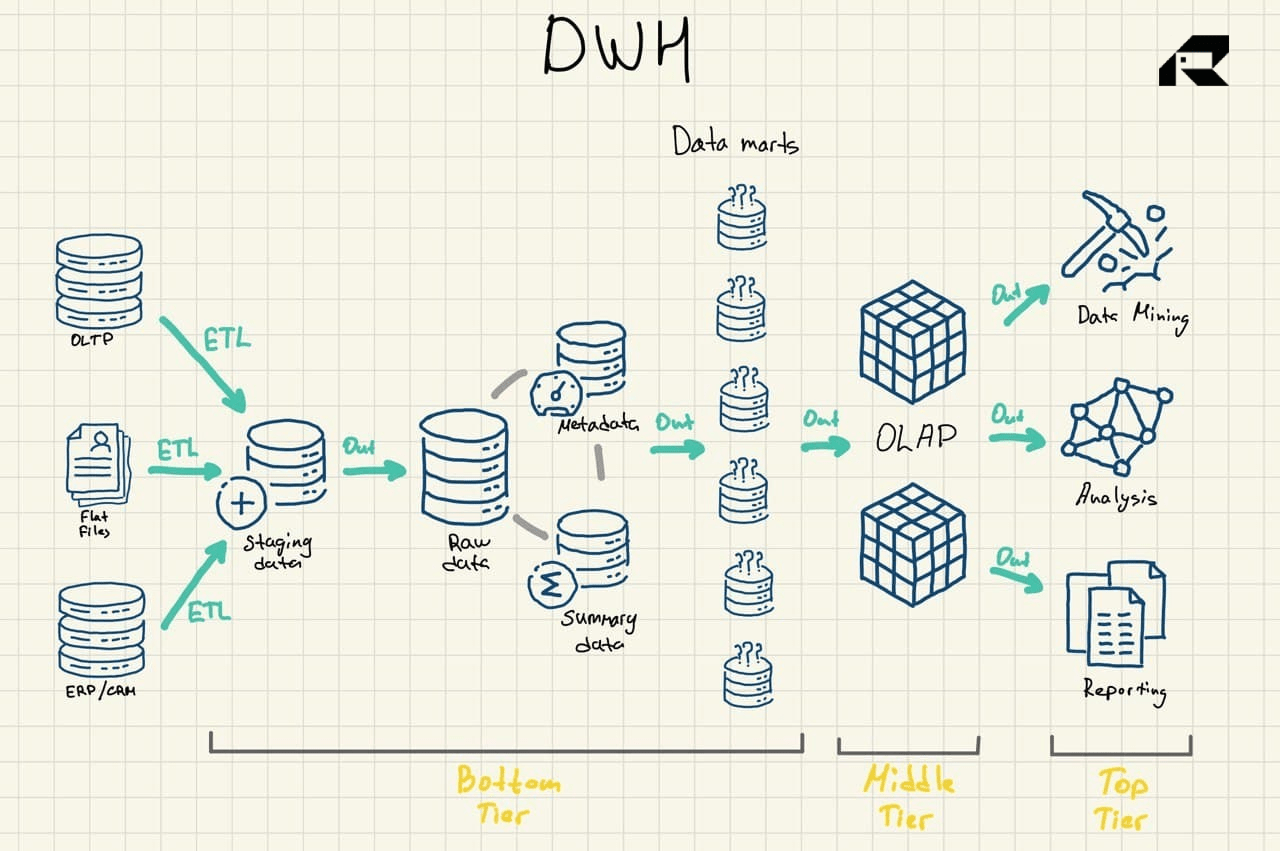 DWH
Data marts
???
???
???
???
???
???
OLTP
ETL
Flat
Files
ETL
ERP/CRM
ETL
+
Staging
data
Out
Raw
data
Metadata
Σ
Summary
data
Out
Out
OLAP
Out
Data Mining
Out
Analysis
Out
Reporting
Bottom
Tier
Middle
Tier
Top
Tier